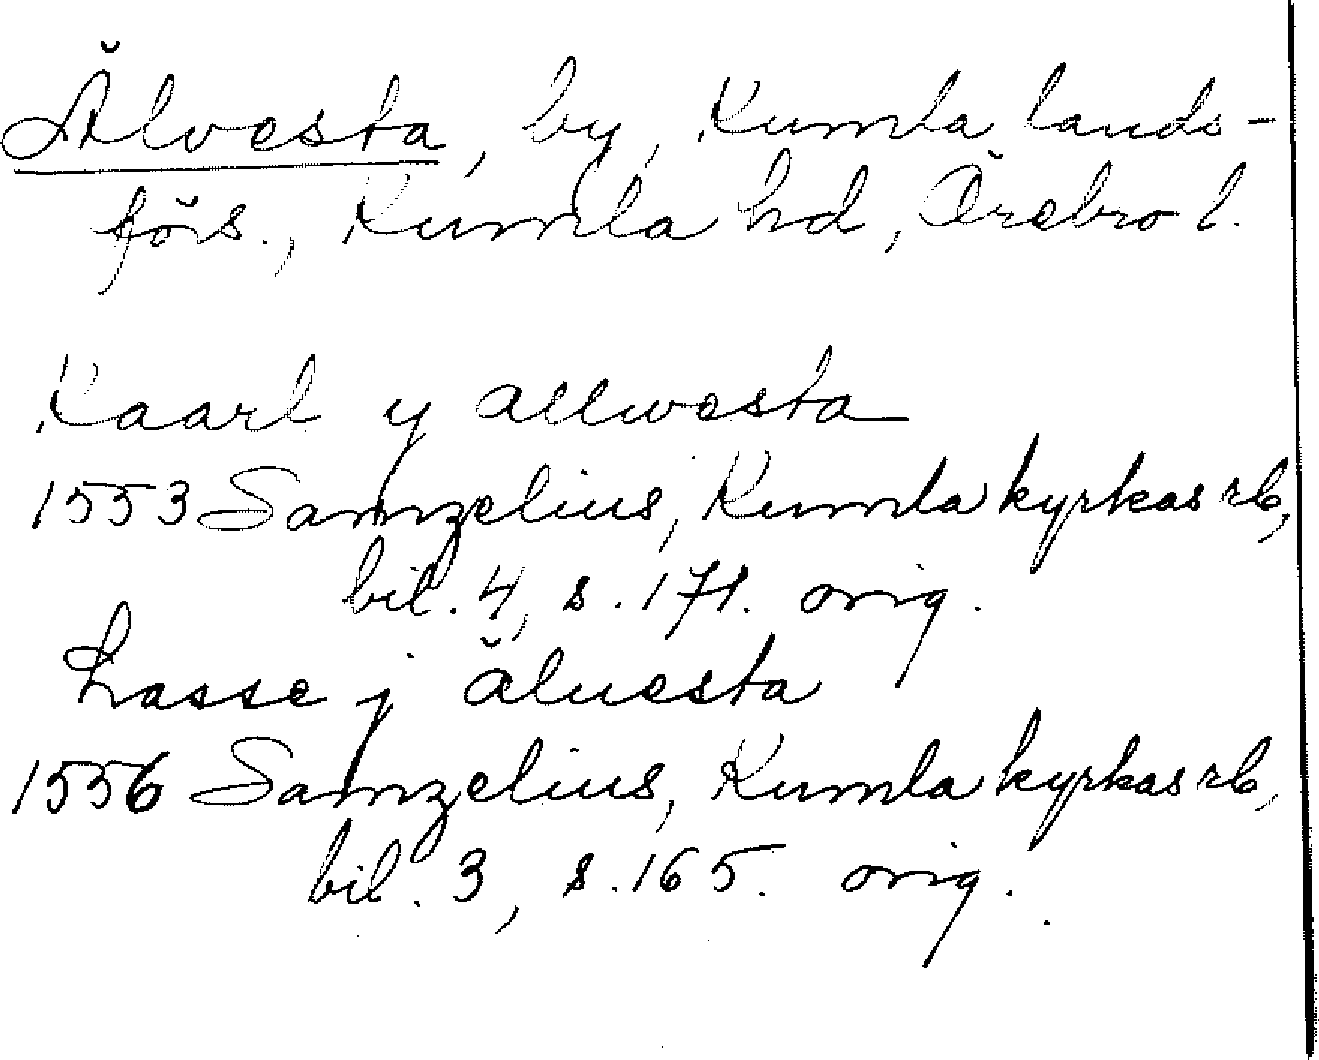 Älvesta, by, Kumla lands-
förs., Kumla hd, Örebro l.
Kaarl y allwesta
1553 Samzelius, Kumla kyrkas rb,
bil. 4, s. 171. orig.
Lasse j äluesta
1556 Samzelius, Kumla kyrkas rb,
bil. 3, s. 165. orig.